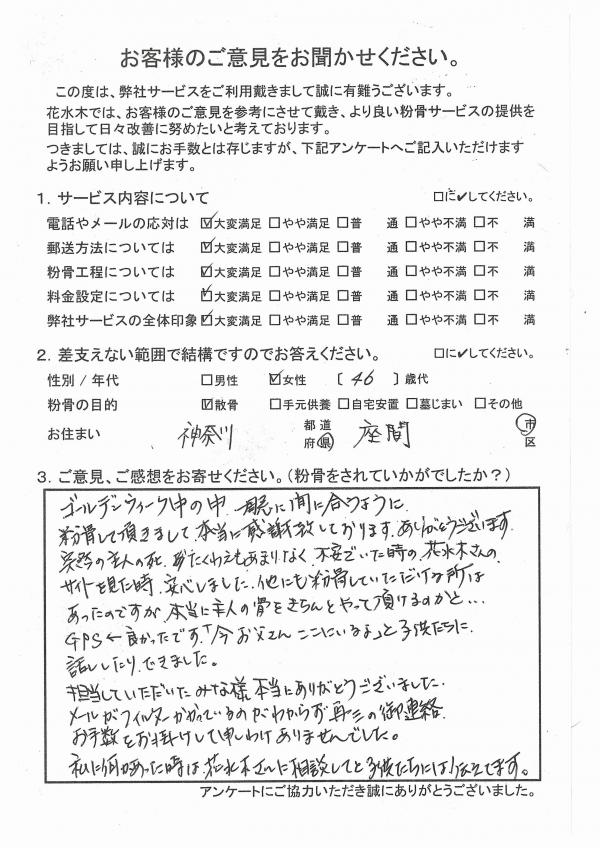 お客様のご意見をお聞かせください。
この度は、弊社サービスをご利用戴きまして誠に有難うございます。
花水木では、お客様のご意見を参考にさせて戴き、より良い粉骨サービスの提供を
目指して日々改善に努めたいと考えております。
つきましては、誠にお手数とは存じますが、下記アンケートへご記入いただけます
ようお願い申し上げます。
1．サービス内容について □に✔してください。
電話やメールの応対は ☑大変満足 □やや満足 □普 通 □やや不満 □不 満
郵送方法については ☑大変満足 □やや満足 □普 通 □やや不満 □不 満
粉骨工程については ☑大変満足 □やや満足 □普 通 □やや不満 □不 満
料金設定については ☑大変満足 □やや満足 □普 通 □やや不満 □不 満
弊社サービスの全体印象 ☑大変満足 □やや満足 □普 通 □やや不満 □不 満
2．差支えない範囲で結構ですのでお答えください。 □に✔してください。
性別／年代 □男性 ☑女性 〔 46 〕歳代
粉骨の目的 ☑散骨 □手元供養 □自宅安置 □墓じまい □その他
お住まい 神奈川 都道府県 座間 市区
3．ご意見、ご感想をお寄せください。（粉骨をされていかがでしたか？）
ゴールデンウィーク中の中、に間に合うように
粉骨して頂きまして、本当に感謝致しております。ありがとうございます。
突然の主人の死、たくわえもあまりなく、不安でいた時の、花水木さんの
サイトを見た時、安心しました。他にも粉骨していただける所は
あったのですが、本当に主人の骨をきちんとやって頂けるのかと…
GPS←良かったです。「今お父さんここにいるよ」と子供たちに
話ししたり、できました。
担当していただいたみな様、本当にありがとうございました。
メールがフィルターかかっているのがわからず再三の御連絡
お手数をお掛けして申しわけありませんでした。
私に何かあった時は花水木さんに相談してと子供たちには伝えてます。
アンケートにご協力いただき誠にありがとうございました。